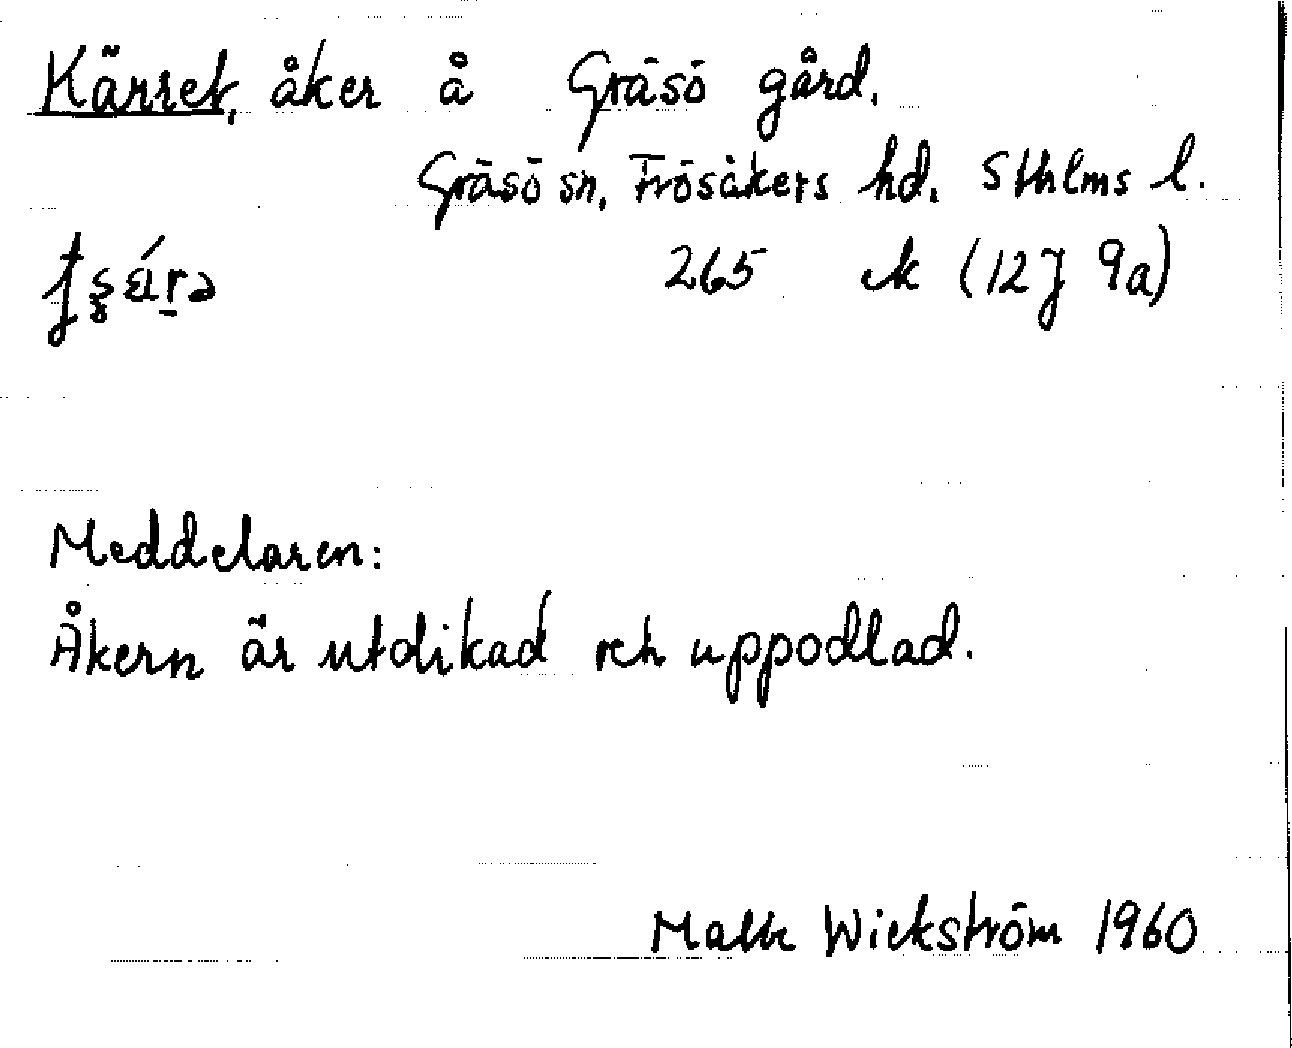 Kärret, åker å Gräsö gård.
Gräsö sn, Frösåkers hd. Sthlms l.
265 ek (12J 9a)
Meddelaren:
Åkern är utdikad och uppodlad.
Wickström 1960